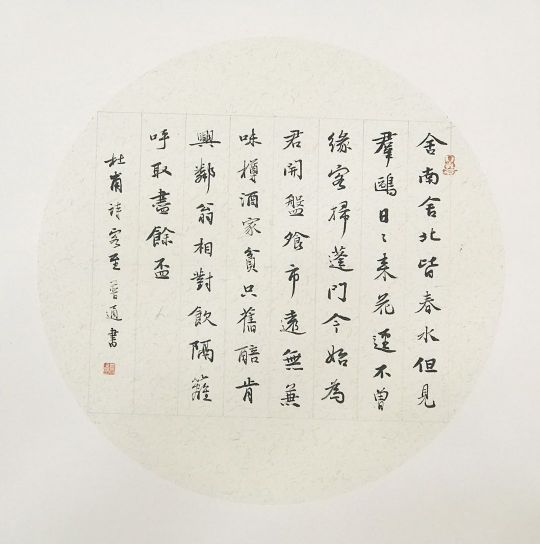 舍南舍北皆春水但見
羣鷗日〻來花逕不曾
緣客掃蓬門今始為
君開盤飧市遠無兼
味樽酒家貧只舊醅肯
與鄰翁相對飲隔籬
呼取盡餘盃
杜甫詩客至 書